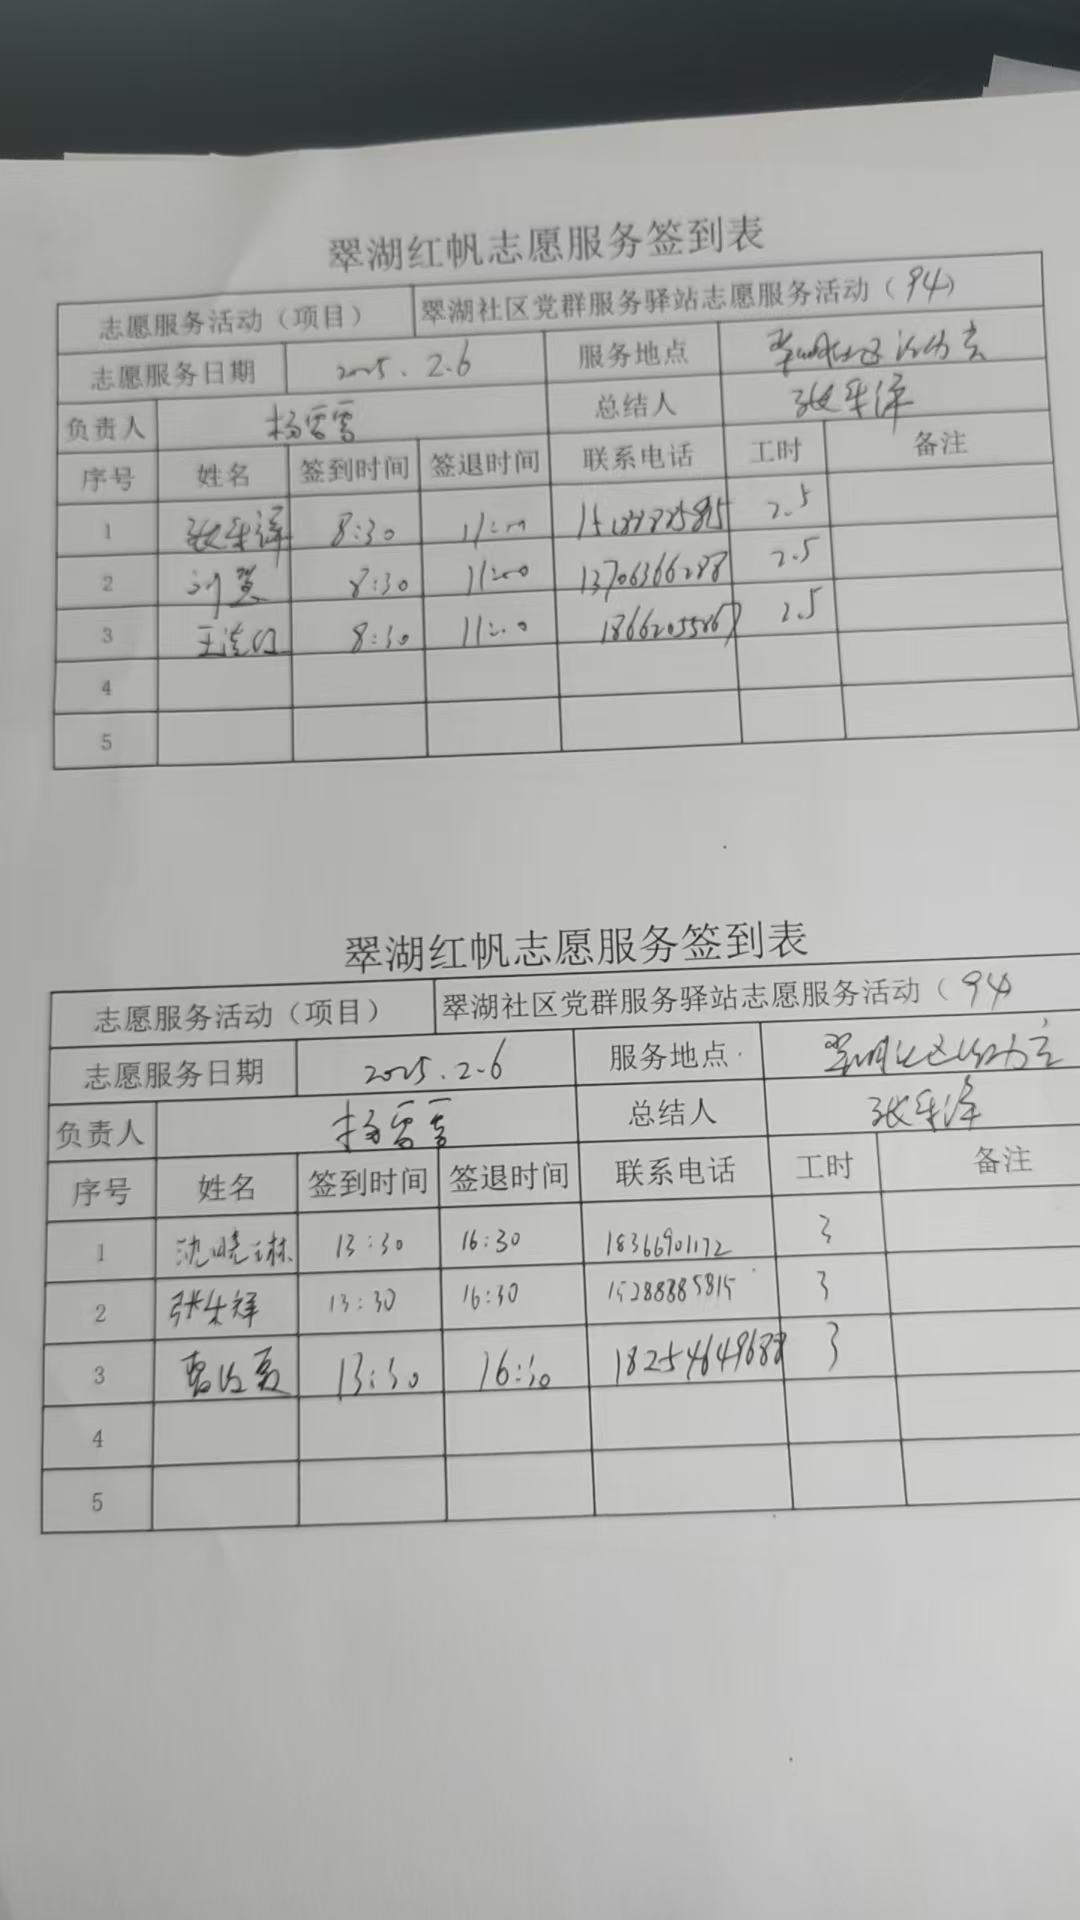 翠湖红帆志愿服务签到表
志愿服务活动（项目） 翠湖社区党群服务驿站志愿服务活动（94）
志愿服务日期 2025.2.6 服务地点
负责人 杨雪雪 总结人
序号 姓名 签到时间 签退时间 联系电话 工时 备注
1 8:30 11:00 2.5
2 刘贺 8:30 11:00 13706366288 2.5
3 8:30 11:00 2.5
4
5
翠湖红帆志愿服务签到表
志愿服务活动（项目） 翠湖社区党群服务驿站志愿服务活动（94
志愿服务日期 2025.2.6 服务地点
负责人 杨雪雪 总结人
序号 姓名 签到时间 签退时间 联系电话 工时 备注
1 沈晓琳 13:30 16:30 18366901172 3
2 13:30 16:30 15288885815 3
3 13:30 16:30 18254649688 3
4
5